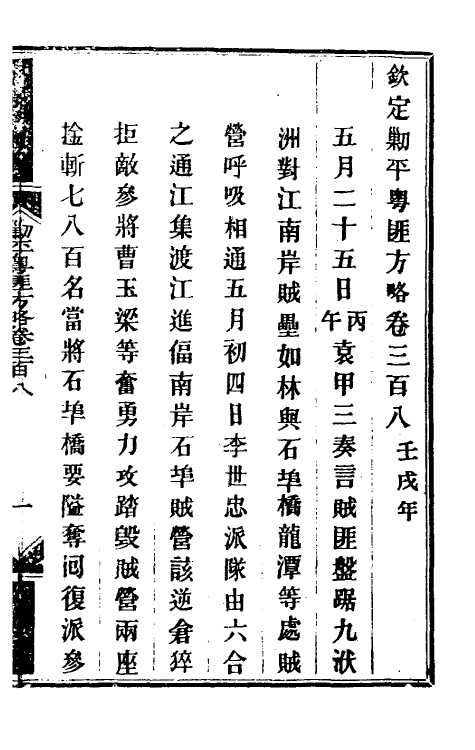 欽定勦平粵匪方略卷三百八 壬戌年
五月二十五日丙午袁甲三奏言賊匪盤踞九洑
洲對江南岸賊壘如林與石埠橋龍潭等處賊
營呼吸相通五月初四日李世忠派隊由六合
之通江集渡江進偪南岸石埠賊營該逆倉猝
拒敵參將曹玉梁等奮勇力攻踏毀賊營兩座
擒斬七八百名當將石埠橋要隘奪回復派參
勦平粵匪方略卷三百八 一